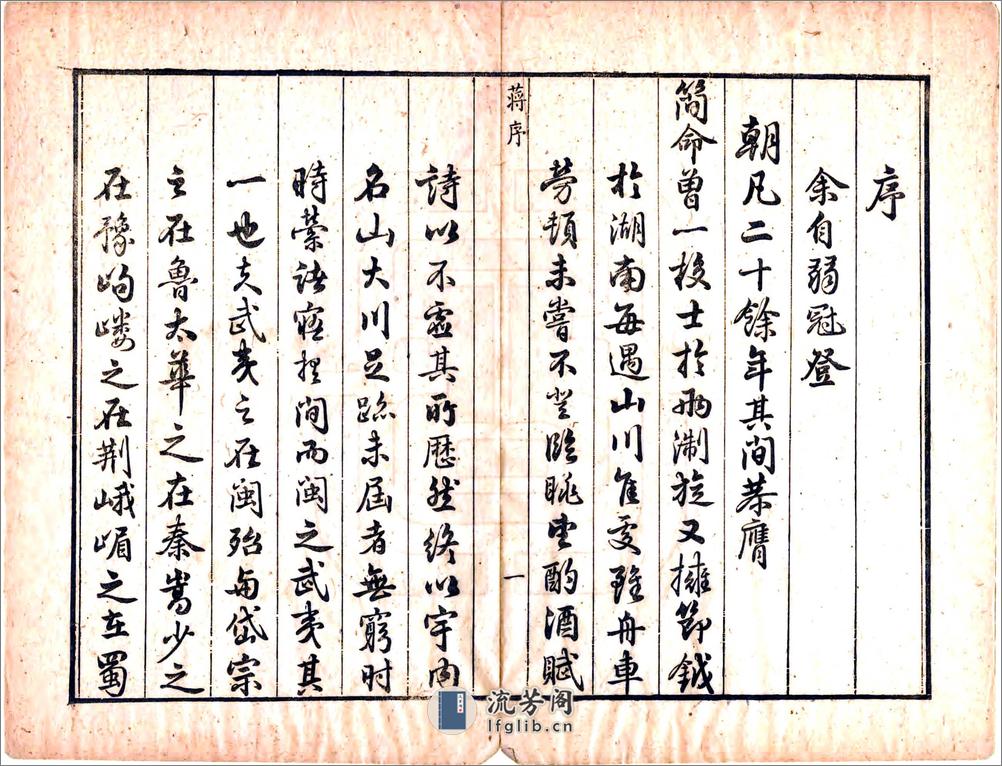 序
余自弱冠登
朝凡二十餘年其间恭膺
簡命曾一校士於兩淛旋又擁節鉞
於湖南每遇山川佳處雖舟車
勞頓未嘗不登臨眺望酌酒賦
蒋序
一
詩以不虛其所歷然終以宇内
名山大川足跡未屆者無窮时
時縈諸寤寐间而閩之武夷其
一也夫武夷之在閩殆與岱宗
之在魯太華之在秦嵩少之
在豫岣嶁之在荆峨嵋之在蜀
流芳阁
lfglib.cn